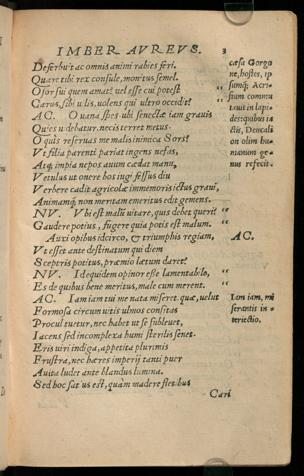 IMBER AVREVS. 3
Deserbuit ac omnis animi rabies feri.
Quare tibi rex consule, monitus semel.
Osor sui quem amat? vel esse cui potest
Carus, sibi uilis, uolens qui ultro occidit?
AC. O uana spes ubi senectæ iam grauis
Quies uidebatur. necis terret metus.
O quis reseruas me malis inimica Sors?
Vt filia parenti pariat ingens nefas,
Atq; impia nepos auum cædat manu,
Vetulus ut onere bos iugi fessus diu
Verbere cadit agricolæ immemoris ictus graui,
Animamq; non meritam emeritus edit gemens.
NV. Vbi est malū uitare, quis debet queri? "
Gaudere potius, fugere quia potis est malum. "
Auxi opibus idcirco, & triumphis regiam,
Vt esset ante destinatum qui diem
Sceptris potitus, præmio lætum daret?
NV. Id equidem opinor esse lamentabile, "
Es de quibus bene meritus, male cum merent. "
AC. Iam iam tui me nata miseret. quæ, uelut
Formosa circum uitis ulmos consitas
Procul tuetur, nec habet ut se subleuet,
Iacens sed incomplexa humi sterilis senet.
Eris uiri indiga, appetita plurimis
Frustra, nec hæres imperij tanti puer
Auita ludet ante blandus lumina.
Sed hoc sat us est, quàm madere fletibus
Cari
cæsa Gorgo
ne, hostes, ip
sumq; Acri-
sium commu
tauit in lapi-
des: quibus ia
ctis, Deucali
on olim hu-
manum ge-
nus refecit.
AC.
Iam iam, mi
serantis in-
teriectio.